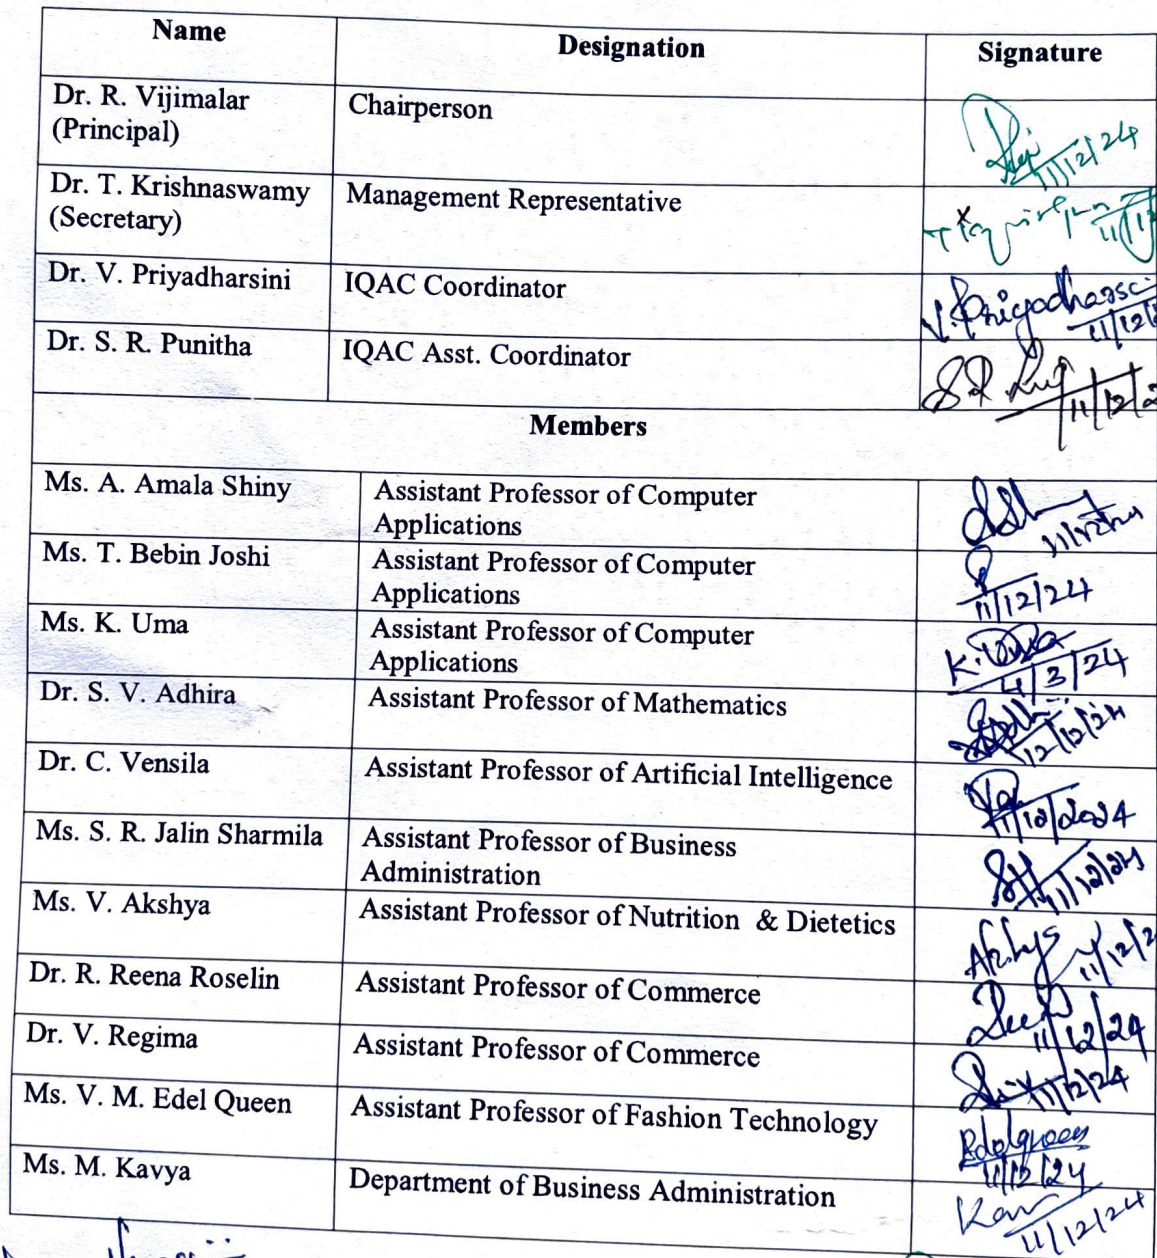 Name Designation Signature
Dr. R. Vijimalar Chairperson
(Principal)
11/12/24
Dr. T. Krishnaswamy Management Representative
(Secretary)
Dr. V. Priyadharsini IQAC Coordinator V. Priyadharsci
11/12/
Dr. S. R. Punitha IQAC Asst. Coordinator
11/12/2
Members
Ms. A. Amala Shiny Assistant Professor of Computer
Applications
11/12/24
Ms. T. Bebin Joshi Assistant Professor of Computer
Applications
11/12/24
Ms. K. Uma Assistant Professor of Computer K. Uma
Applications
11/3/24
Dr. S. V. Adhira Assistant Professor of Mathematics
12/12/24
Dr. C. Vensila Assistant Professor of Artificial Intelligence
11/12/2024
Ms. S. R. Jalin Sharmila Assistant Professor of Business
Administration
11/12/24
Ms. V. Akshya Assistant Professor of Nutrition & Dietetics
11/12/2
Dr. R. Reena Roselin Assistant Professor of Commerce
11/12/24
Dr. V. Regima Assistant Professor of Commerce
11/12/24
Ms. V. M. Edel Queen Assistant Professor of Fashion Technology Edelqueen
11/12/24
Ms. M. Kavya Department of Business Administration
11/12/24